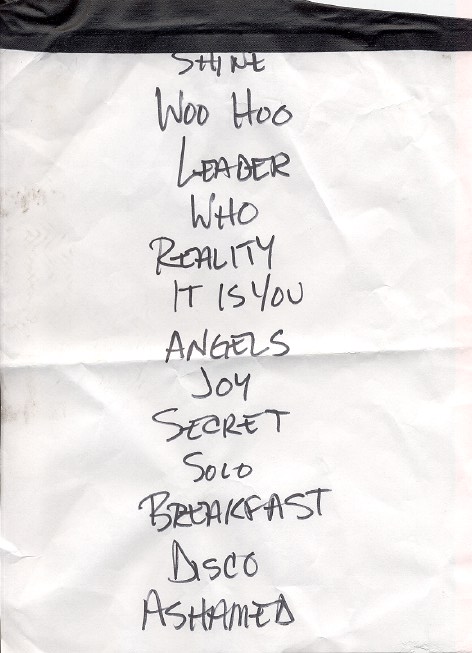 SHINE
WOO HOO
LEADER
WHO
REALITY
IT IS YOU
ANGELS
JOY
SECRET
SOLO
BREAKFAST
DISCO
ASHAMED